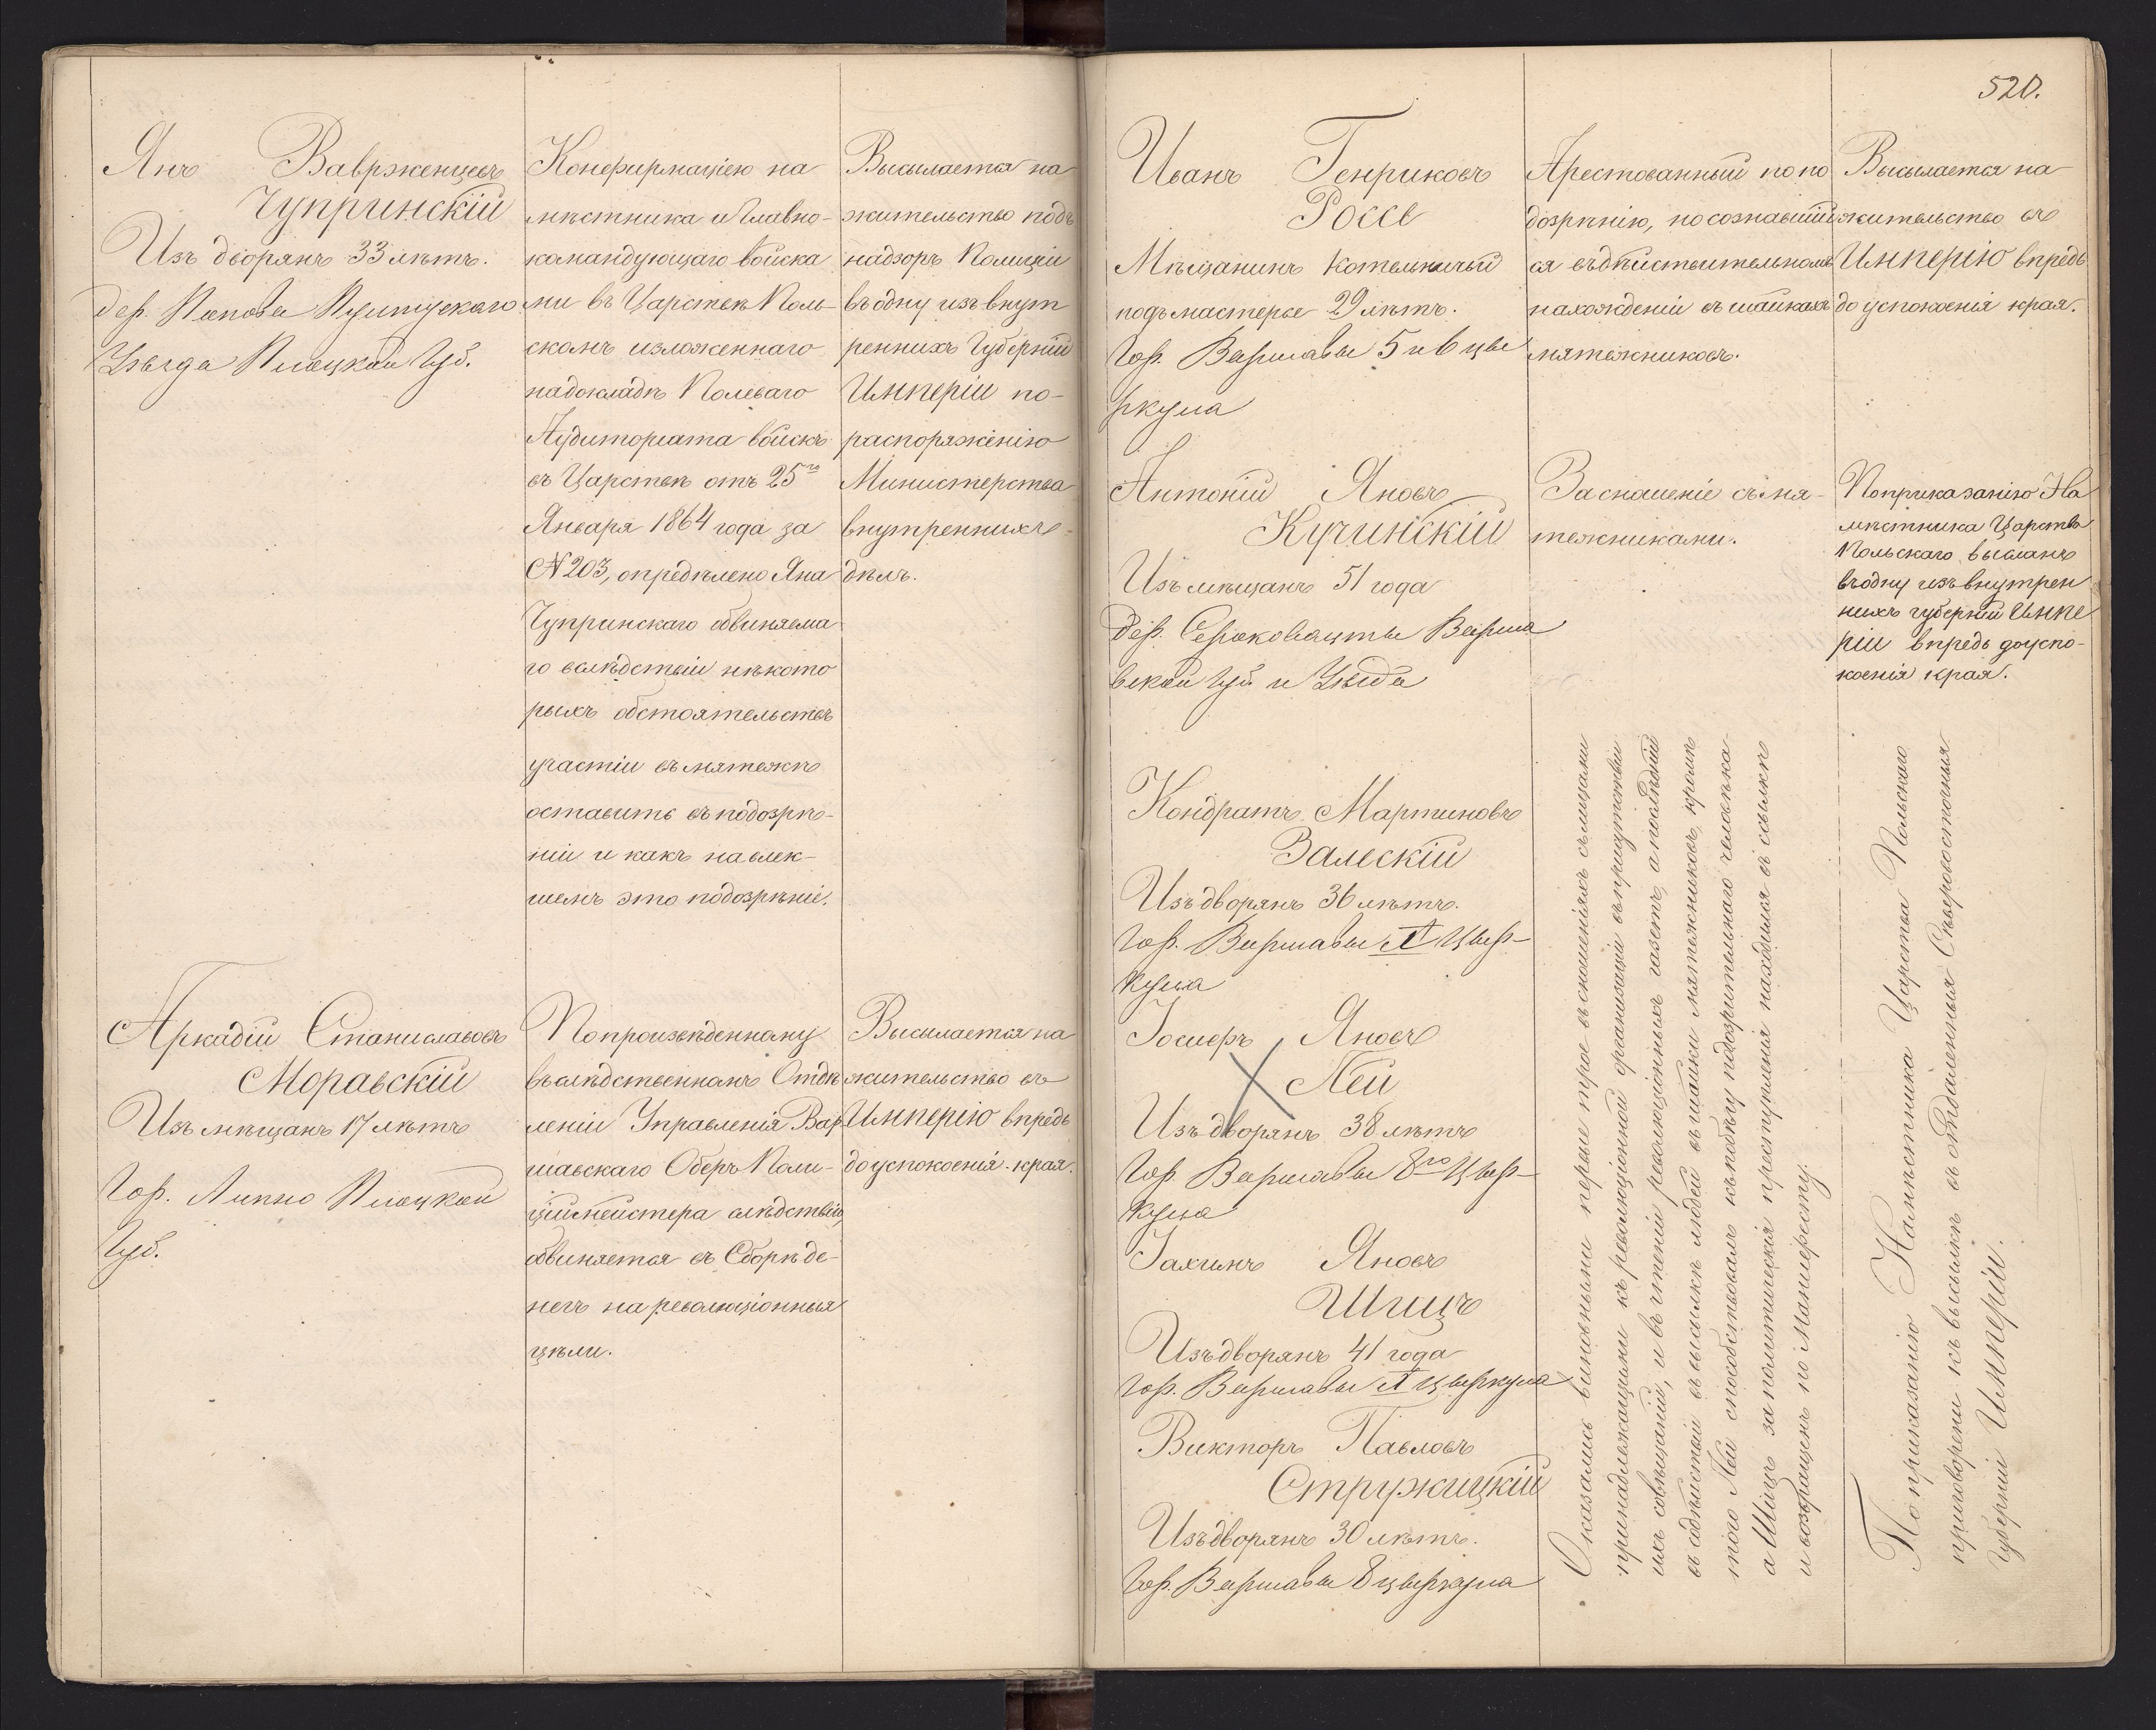 Янъ Ваврженцевъ
Чупринскій
Изъ дворянъ 33 лѣтъ.
дер. Попова Пултускаго
Уѣзда Плоцкой Губ.
Конфирмаціею на
мѣстника и Главно-
командующаго войска
ми въ Царствѣ Поль-
скомъ изложеннаго
на докладѣ Полеваго
Аудиторіата войскъ
въ Царствѣ отъ 25го
Января 1864 года за
№ 203, опредѣлено Яна
Чупринскаго обвиняема
го вслѣдствіи нѣкото
рыхъ обстоятельствъ
участіи въ мятежѣ
оставить въ подозрѣ-
ніи и какъ навлек-
шемъ это подозрѣніе.
Высылается на
жительство подъ
надзоръ Полиціи
въ одну изъ внут
реннихъ Губерній
Имперіи по-
распоряженію
Министерства
внутреннихъ
дѣлъ.
Аркадій Станиславовъ
Моравскій
Изъ мѣщанъ 17 лѣтъ
Гор. Липно Плоцкой
Губ.
По произведенному
въ слѣдственномъ Отдѣ
леніи Управленія Вар
шавскаго Оберъ Поли-
ціймейстера слѣдствію,
обвиняется въ Сборѣ де-
негъ на революціонныя
цѣли.
Высылается на
жительство въ
Имперію впредь
до успокоенія края.
520.
Иванъ Генриковъ
Россе
Мѣщанинъ Котельничый
подъмастерье 29 лѣтъ.
Гор. Варшавы 5 и 6 цы
ркула
Арестованный по по
дозрѣнію, но сознавшій
ся въ дѣйствительномъ
нахожденіи въ шайкахъ
мятежниковъ.
Высылается на
жительство въ
Имперію впредь
до успокоенія края.
Антоній Яновъ
Кучинскій
Изъ мѣщанъ 51 года
дер. Варша
вской Губ. и Уѣзда
За сношеніе съ мя-
тежниками.
По приказанію На
мѣстника Царства
Польскаго высланъ
въ одну изъ внутрен
нихъ губерній Импе
ріи впредь до успо-
коенія края.
Кондратъ Мартиновъ
Залескій
Изъ дворянъ 36 лѣтъ.
Гор. Варшавы Цыр-
кула
Іосифъ Яновъ
Лей
Изъ дворянъ 38 лѣтъ
Гор. Варшавы 8го Цыр-
кула
Іахимъ Яновъ
Шицъ
Изъ дворянъ 41 года
Гор. Варшавы циркула
Викторъ Павловъ
Стружицкій
Изъ дворянъ 30 лѣтъ.
Гор. Варшавы 8 цыркула
Оказались виновными первые трое въ сношеніяхъ съ лицами
принадлежащими къ революціонной организаціи въ присутствіи
ихъ совѣщаній, и въ чтеніи революціонныхъ газетъ, а послѣдній
въ содѣйствіи въ высылкѣ людей въ шайки мятежниковъ, кромѣ
того Лей способствовалъ къ побѣгу подозрительнаго человѣка
а Шицъ за политическія преступленія находился въ ссылкѣ
и возвращенъ по Манифесту.
По приказанію Намѣстника Царства Польскаго
приговорены къ высылкѣ въ отдаленныя Сѣверовосточныя
Губерніи Имперіи.